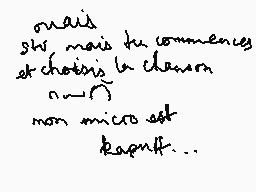 ouais
str, mais tu commences
et choisis la chanson
mon micro est
kaputt...